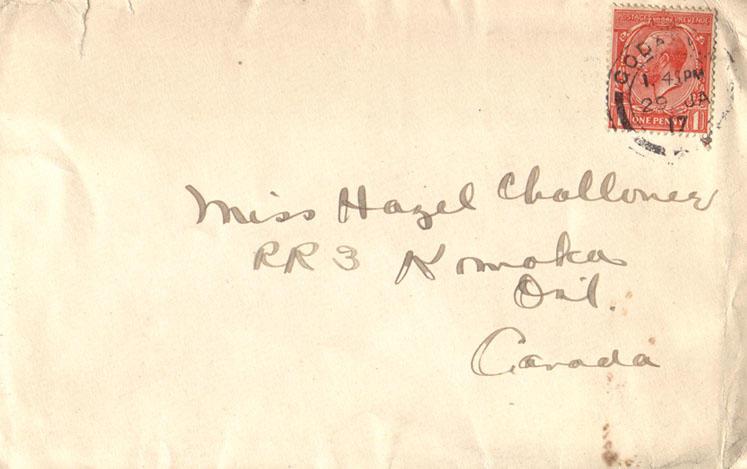 POSTAGE REVENUE
GODAL
1.45PM
29 JA
17
ONE PENNY 1
Miss Hazel Challoner
RR 3 Komoka
Ont.
Canada